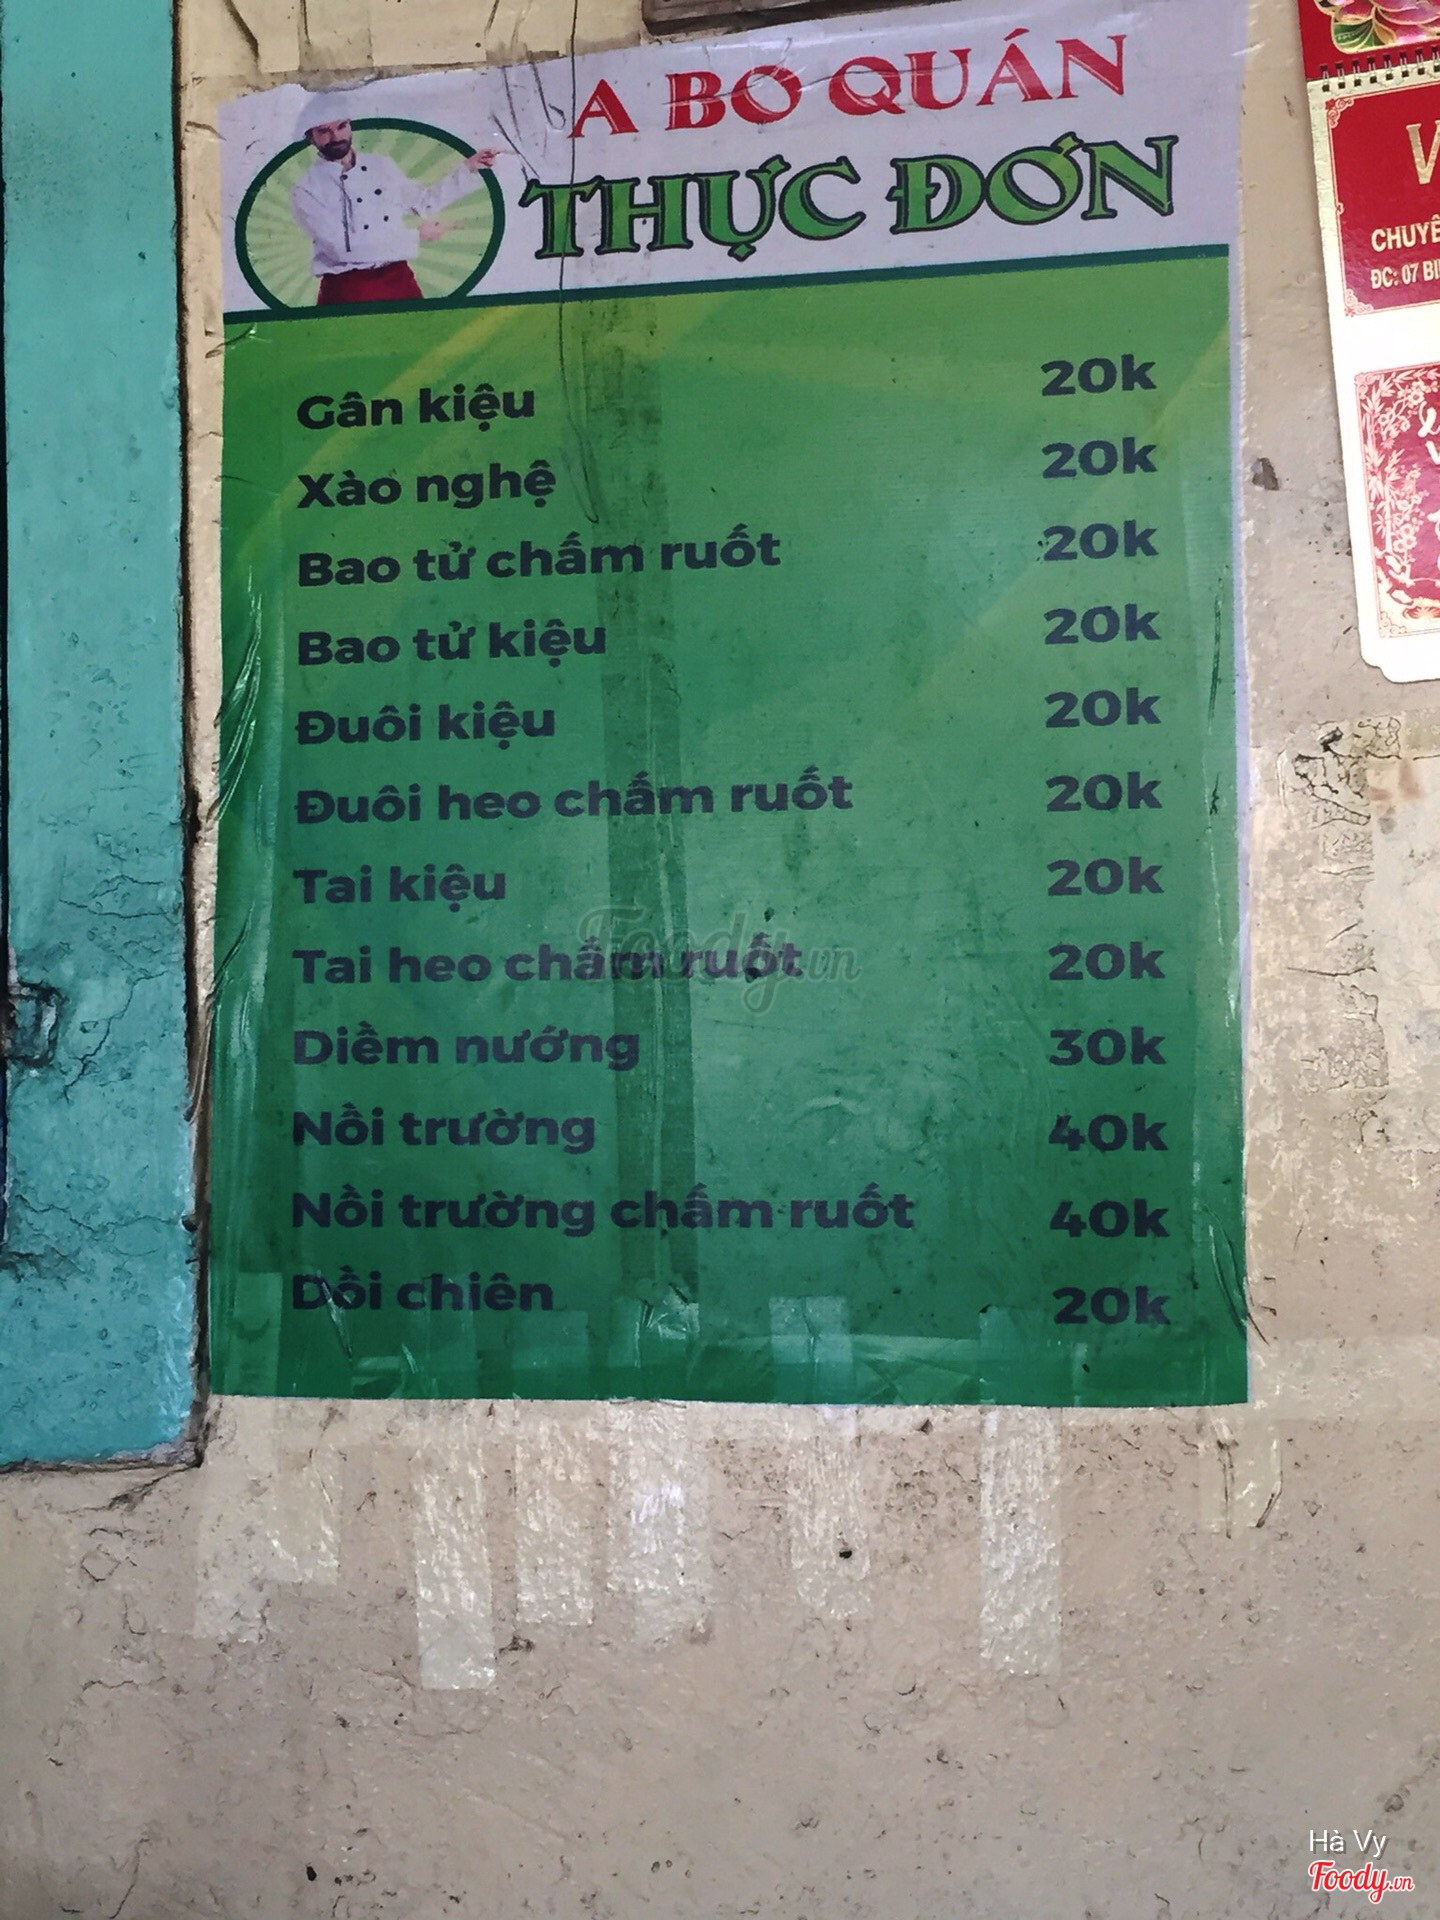 A BO QUÁN
THỰC ĐƠN
Gân kiệu 20k
Xào nghệ 20k
Bao tử chấm ruốt 20k
Bao tử kiệu 20k
Đuôi kiệu 20k
Đuôi heo chấm ruốt 20k
Tai kiệu 20k
Tai heo chấm ruốt 20k
Diềm nướng 30k
Nồi trường 40k
Nồi trường chấm ruốt 40k
Dồi chiên 20k
Foody.vn
V
CHUYÊ
ĐC: 07 BI
Hà Vy
Foody.vn